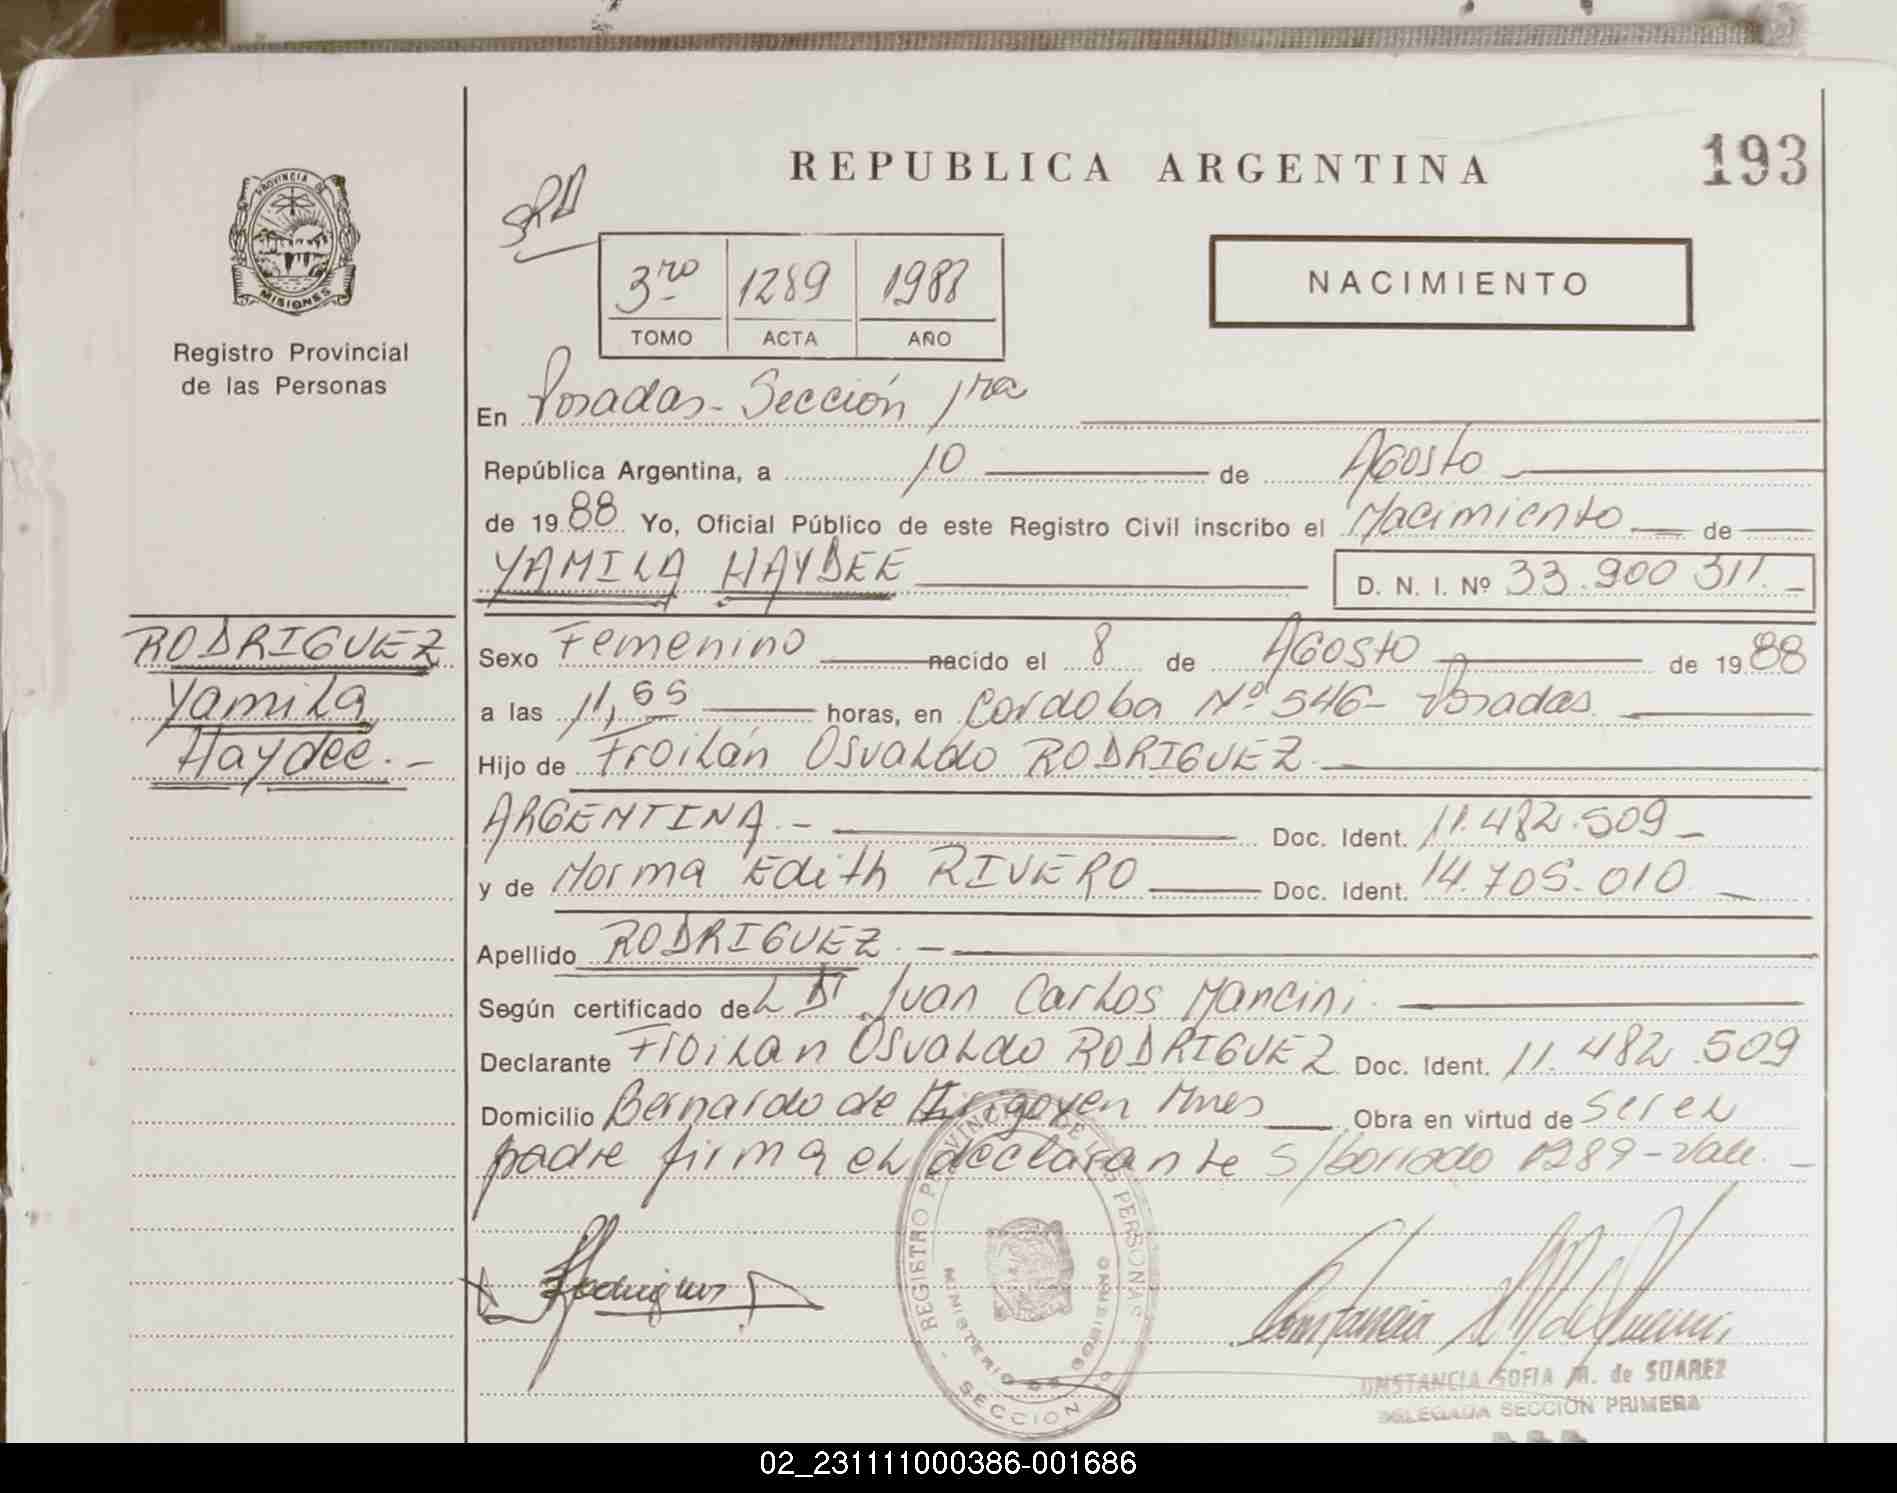 REPUBLICA ARGENTINA
193
PROVINCIA DE
MISIONES
Registro Provincial
de las Personas
3ro 1289 1988
TOMO ACTA AÑO
NACIMIENTO
En Posadas - Sección 1ra
República Argentina, a 10 de Agosto
de 1988 Yo, Oficial Público de este Registro Civil inscribo el Nacimiento de
YAMILA HAYDEE D. N. I. Nº 33.900 311. -
RODRIGUEZ
Yamila
Haydee. -
Sexo Femenino nacido el 8 de Agosto de 1988
a las 11,55 horas, en Cordoba Nº 546 - Posadas.
Hijo de Froilán Osvaldo RODRIGUEZ.
ARGENTINA. - Doc. Ident. 11.482.509 -
y de Norma Edith RIVERO Doc. Ident. 14.705.010. -
Apellido RODRIGUEZ. -
Según certificado deL Dr Juan Carlos Mancini.
Declarante Froilan Osvaldo RODRIGUEZ Doc. Ident. 11.482.509
Domicilio Bernardo de Hirigoyen Mnes Obra en virtud de ser el
padre firma el declarante s/borrado 1289 - Vale. -
REGISTRO PROVINCIAL DE LAS PERSONAS
MINISTERIO DE GOBIERNO
SECCION
CONSTANCIA SOFIA M. de SUAREZ
DELEGADA SECCION PRIMERA
02_231111000386-001686